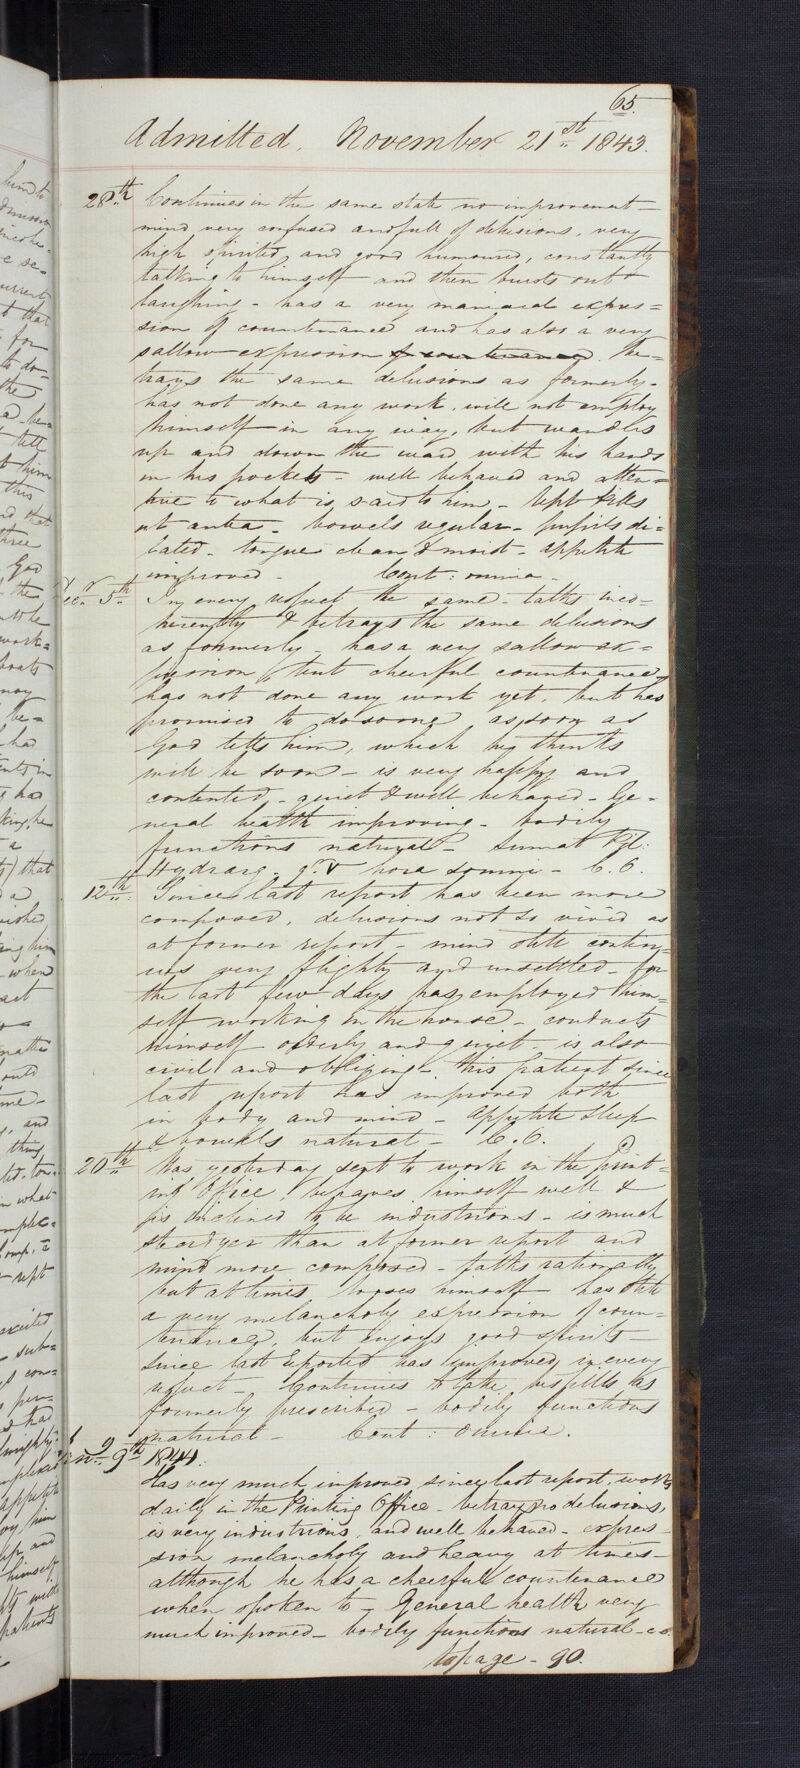 65.
Admitted, November 21st 1843.
28th Continues in the same state no improvement -
mind very confused and full of delusions, very
high spirited and good humoured, constantly
talking to himself and then bursts out
laughing - has a very maniacal expres=
sion of countenance and has also a very
sallow expression of countenance. Be=
trays the same delusions as formerly.
has not done any work, will not employ
himself in any way, but wanders
up and down the ward with his hands
in his pockets - well behaved and atten=
tive to what is said to him - Rept Pills
ut antea - bowels regular - pupils di=
lated - tongue clean & moist - appetite
improved - Cont: omnia -
Decr 5th In every respect the same - talks inco=
herently & betrays the same delusions
as formerly - has a very sallow ex=
pression but cheerful countenance
has not done any work yet, but has
promised to do some as soon as
God tells him, which he thinks
will be soon - is very happy and
contented - quiet & well behaved - Ge=
neral health improving - bodily
functions natural - Sumat Pil:
Hydrarg. gr. V hora somni - C. O.
12th Since last report has been more
composed, delusions not so vivid as
at former report - mind still contin=
ues very flighty and unsettled - for
the last few days has employed him=
self working in the house - conducts
himself orderly and quiet - is also
civil and obliging - this patient since
last report has improved both
in body and mind - appetite sleep
& bowels natural - C. O.
20th Was yesterday sent to work in the Print=
ing Office, behaves himself well &
is inclined to be industrious - is much
steadyer than at former report and
mind more composed - talks rationally
but at times looses himself - has still
a very melancholy expression of coun=
tenance, but enjoys good spirits -
Since last Reported has improved in every
respect - Continues to take his pills as
formerly prescribed - bodily functions
natural - Cont: omnia.
Jany 9th 1844.
Has very much improved since last report, works
daily in the Printing Office - betrays no delusions,
is very industrious, and well behaved - expres=
sion melancholy and heavy at times -
although he has a cheerful countenance
when spoken to - General health very
much improved - bodily functions natural - co.
to page - 90.